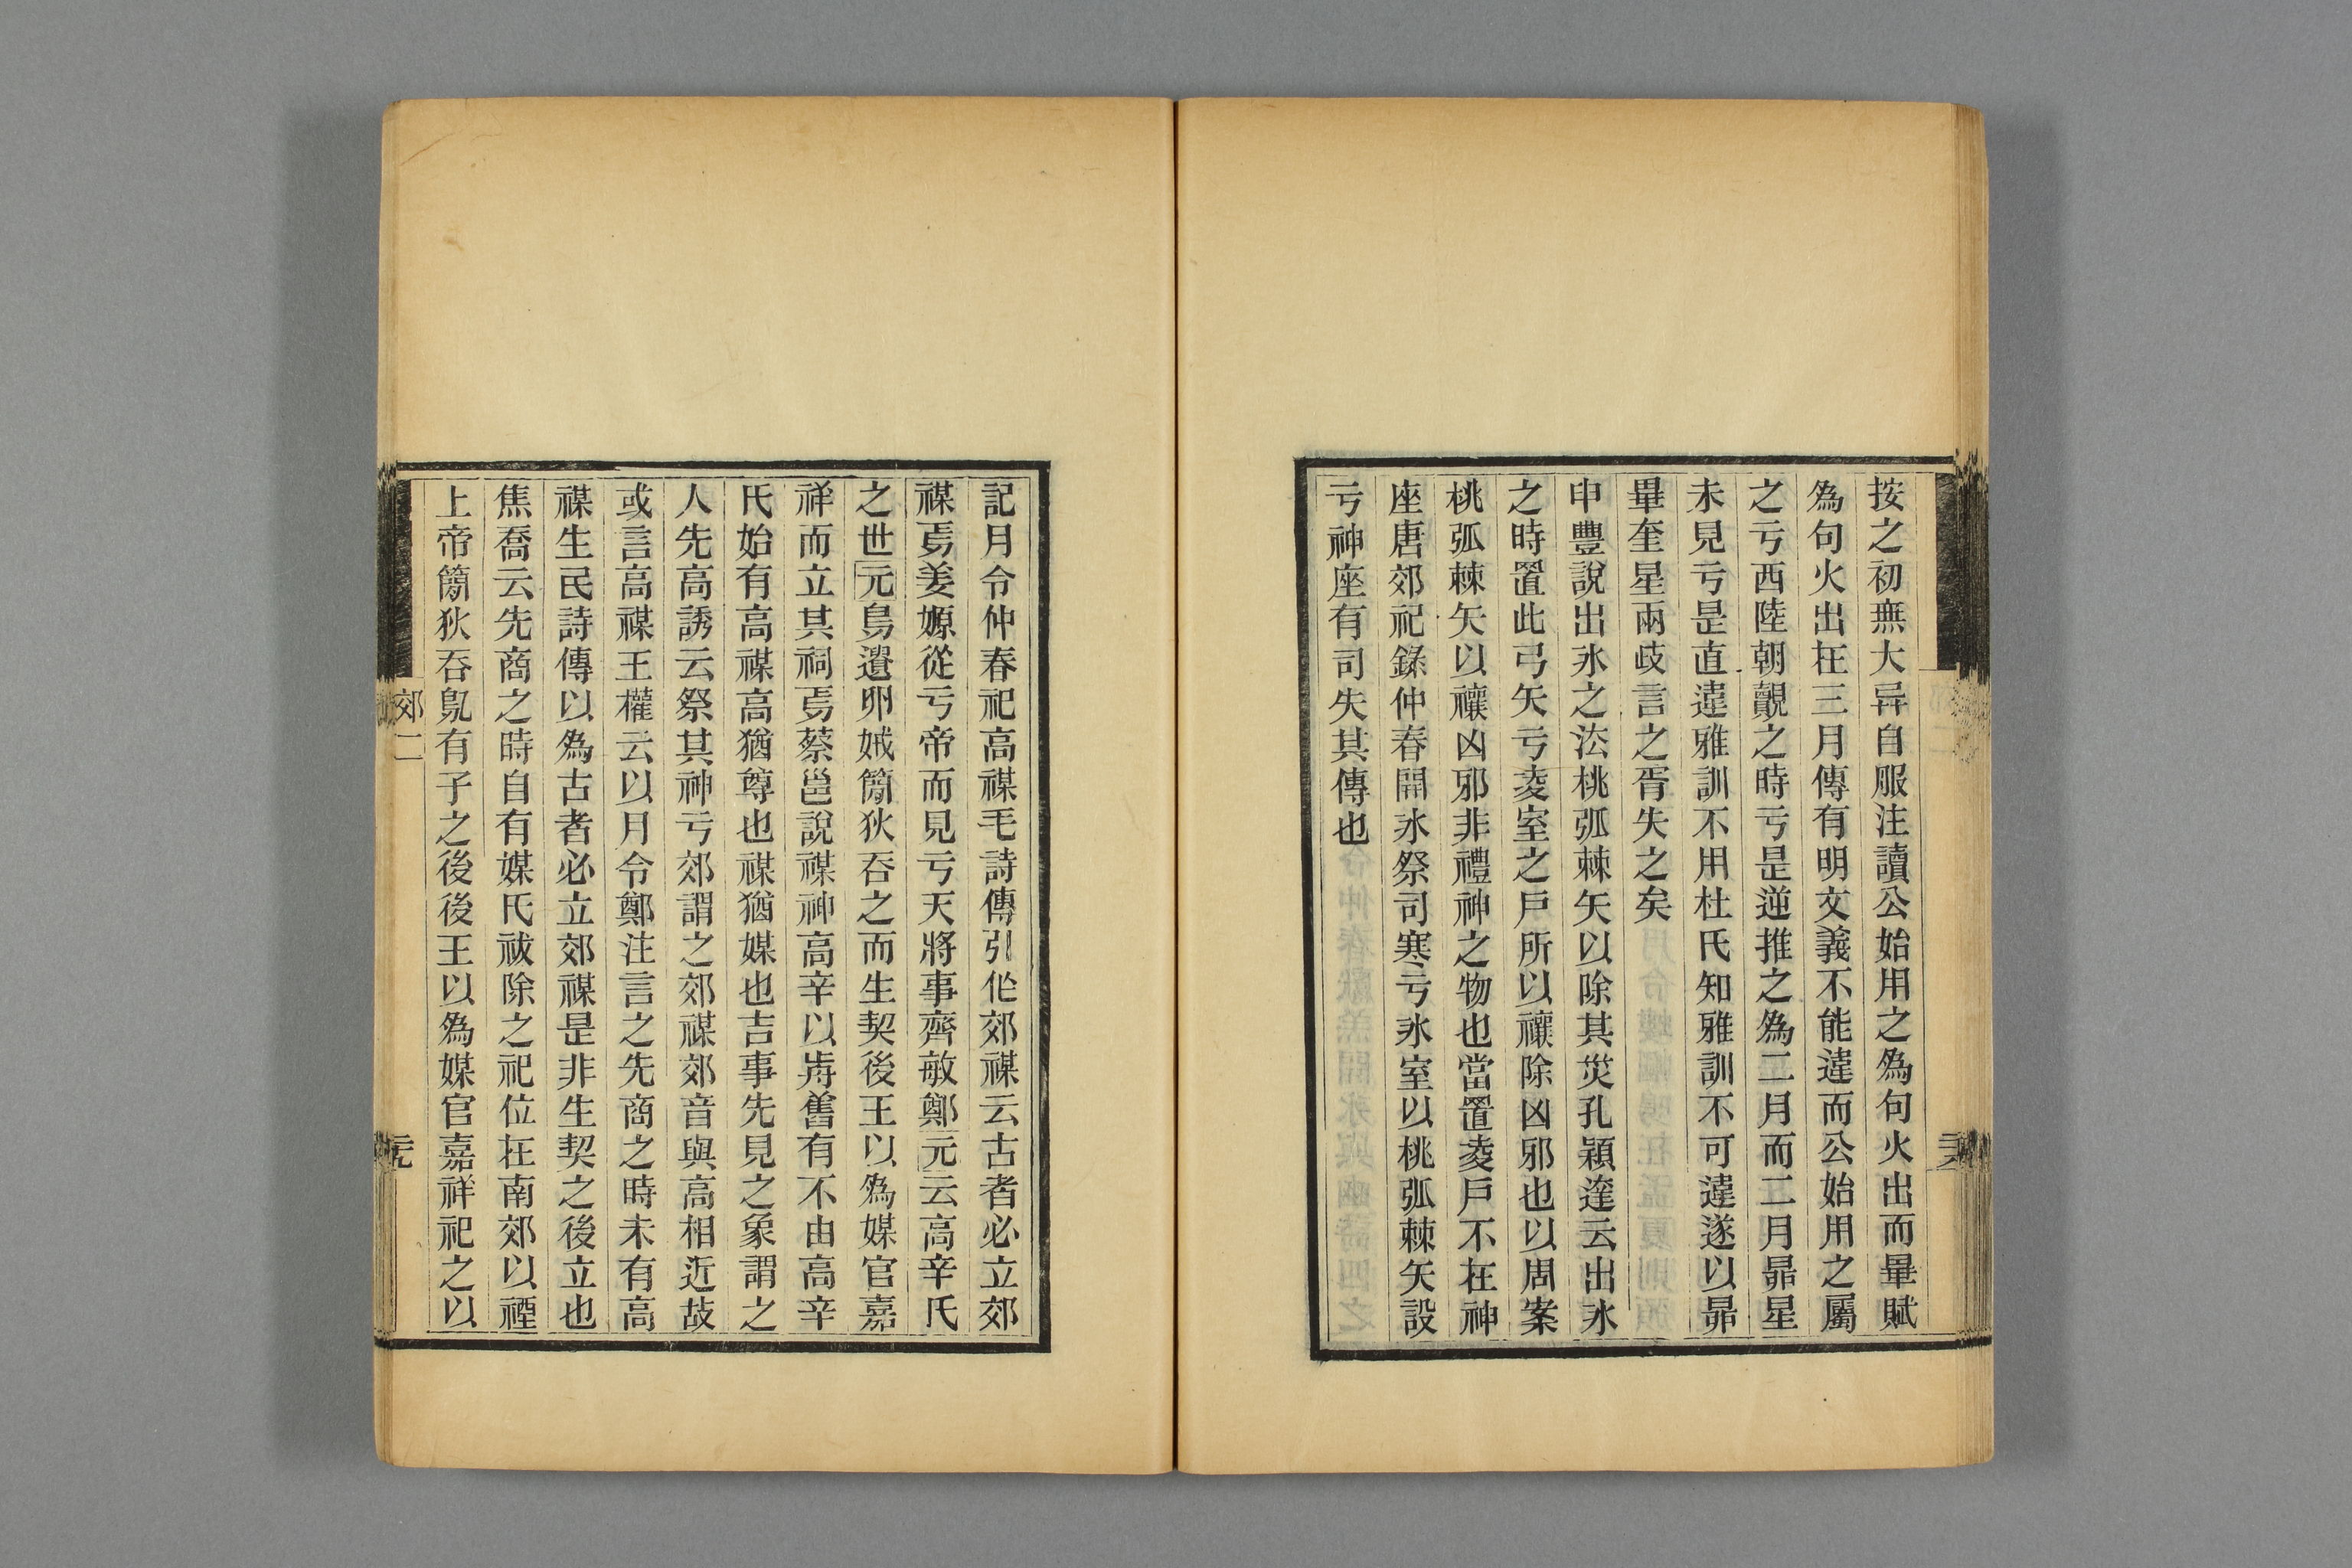 按之初無大异自服注讀公始用之爲句火出而畢賦
爲句火出在三月傳有明文義不能違而公始用之屬
之亏西陸朝覿之時亏是逆推之爲二月而二月昴星
未見亏是直違雅訓不用杜氏知雅訓不可違遂以昴
畢奎星兩歧言之胥失之矣
申豐說出氷之法桃弧棘矢以除其災孔穎達云出氷
之時置此弓矢亏凌室之戶所以禳除凶邪也以周案
桃弧棘矢以禳凶邪非禮神之物也當置凌戶不在神
座唐郊祀錄仲春開氷祭司寒亏氷室以桃弧棘矢設
亏神座有司失其傳也
記月令仲春祀高禖毛詩傳引作郊禖云古者必立郊
禖焉姜嫄從亏帝而見亏天將事齊敏鄭元云高辛氏
之世元鳥遺卵娀簡狄吞之而生契後王以爲媒官嘉
祥而立其祠焉蔡邕說禖神高辛以歬舊有不由高辛
氏始有高禖高猶尊也禖猶媒也吉事先見之象謂之
人先高誘云祭其神亏郊謂之郊禖郊音與高相近故
或言高禖王權云以月令鄭注言之先商之時未有高
禖生民詩傳以爲古者必立郊禖是非生契之後立也
焦喬云先商之時自有媒氏祓除之祀位在南郊以禋
上帝簡狄吞鳦有子之後後王以爲媒官嘉祥祀之以
郊二